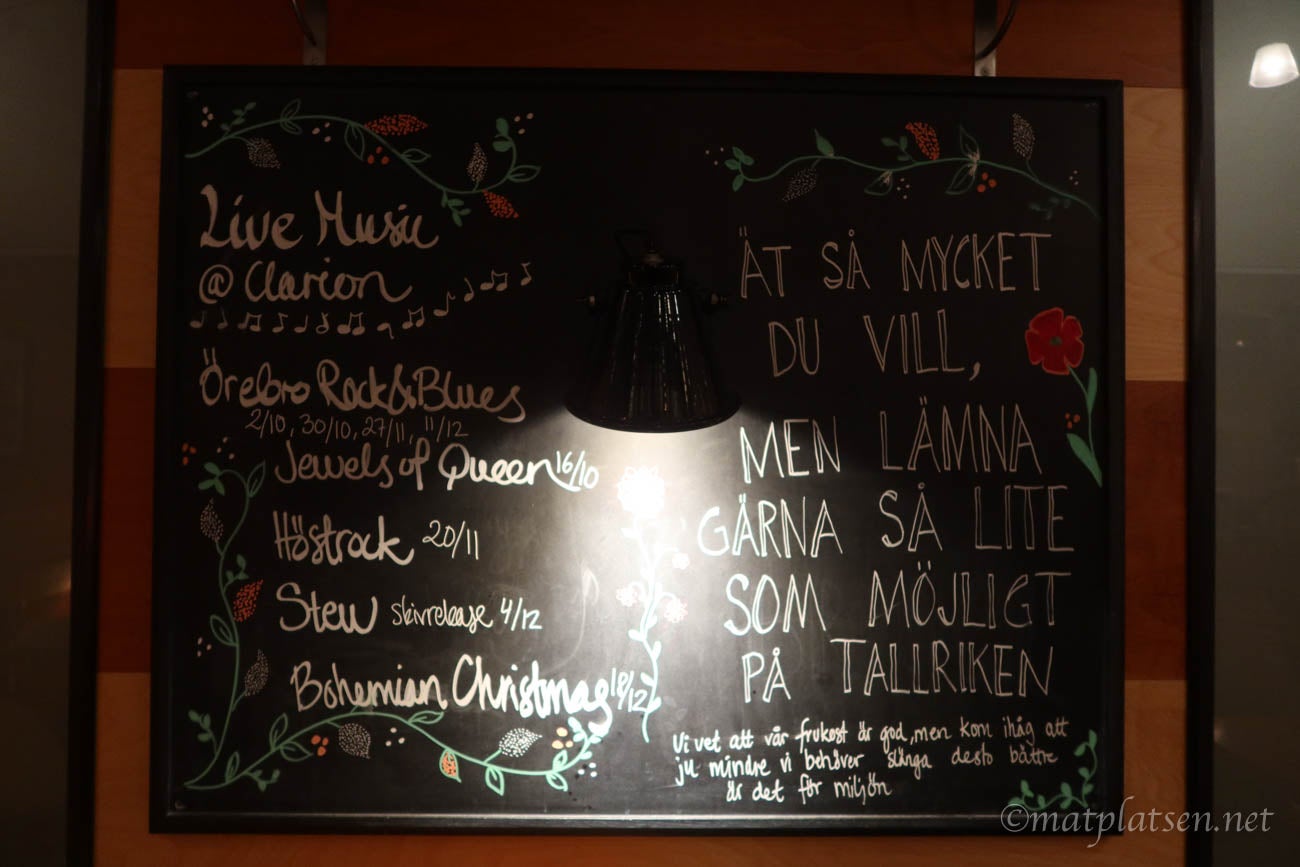 Live Music
@ Clarion
Örebro Rock&Blues
2/10, 30/10, 27/11, 11/12
Jewels of Queen 16/10
Höstrock 20/11
Stew skivrelease 4/12
Bohemian Christmas 18/12
ÄT SÅ MYCKET
DU VILL,
MEN LÄMNA
GÄRNA SÅ LITE
SOM MÖJLIGT
PÅ TALLRIKEN
Vi vet att vår frukost är god, men kom ihåg att
ju mindre vi behöver slänga desto bättre
är det för miljön
©matplatsen.net